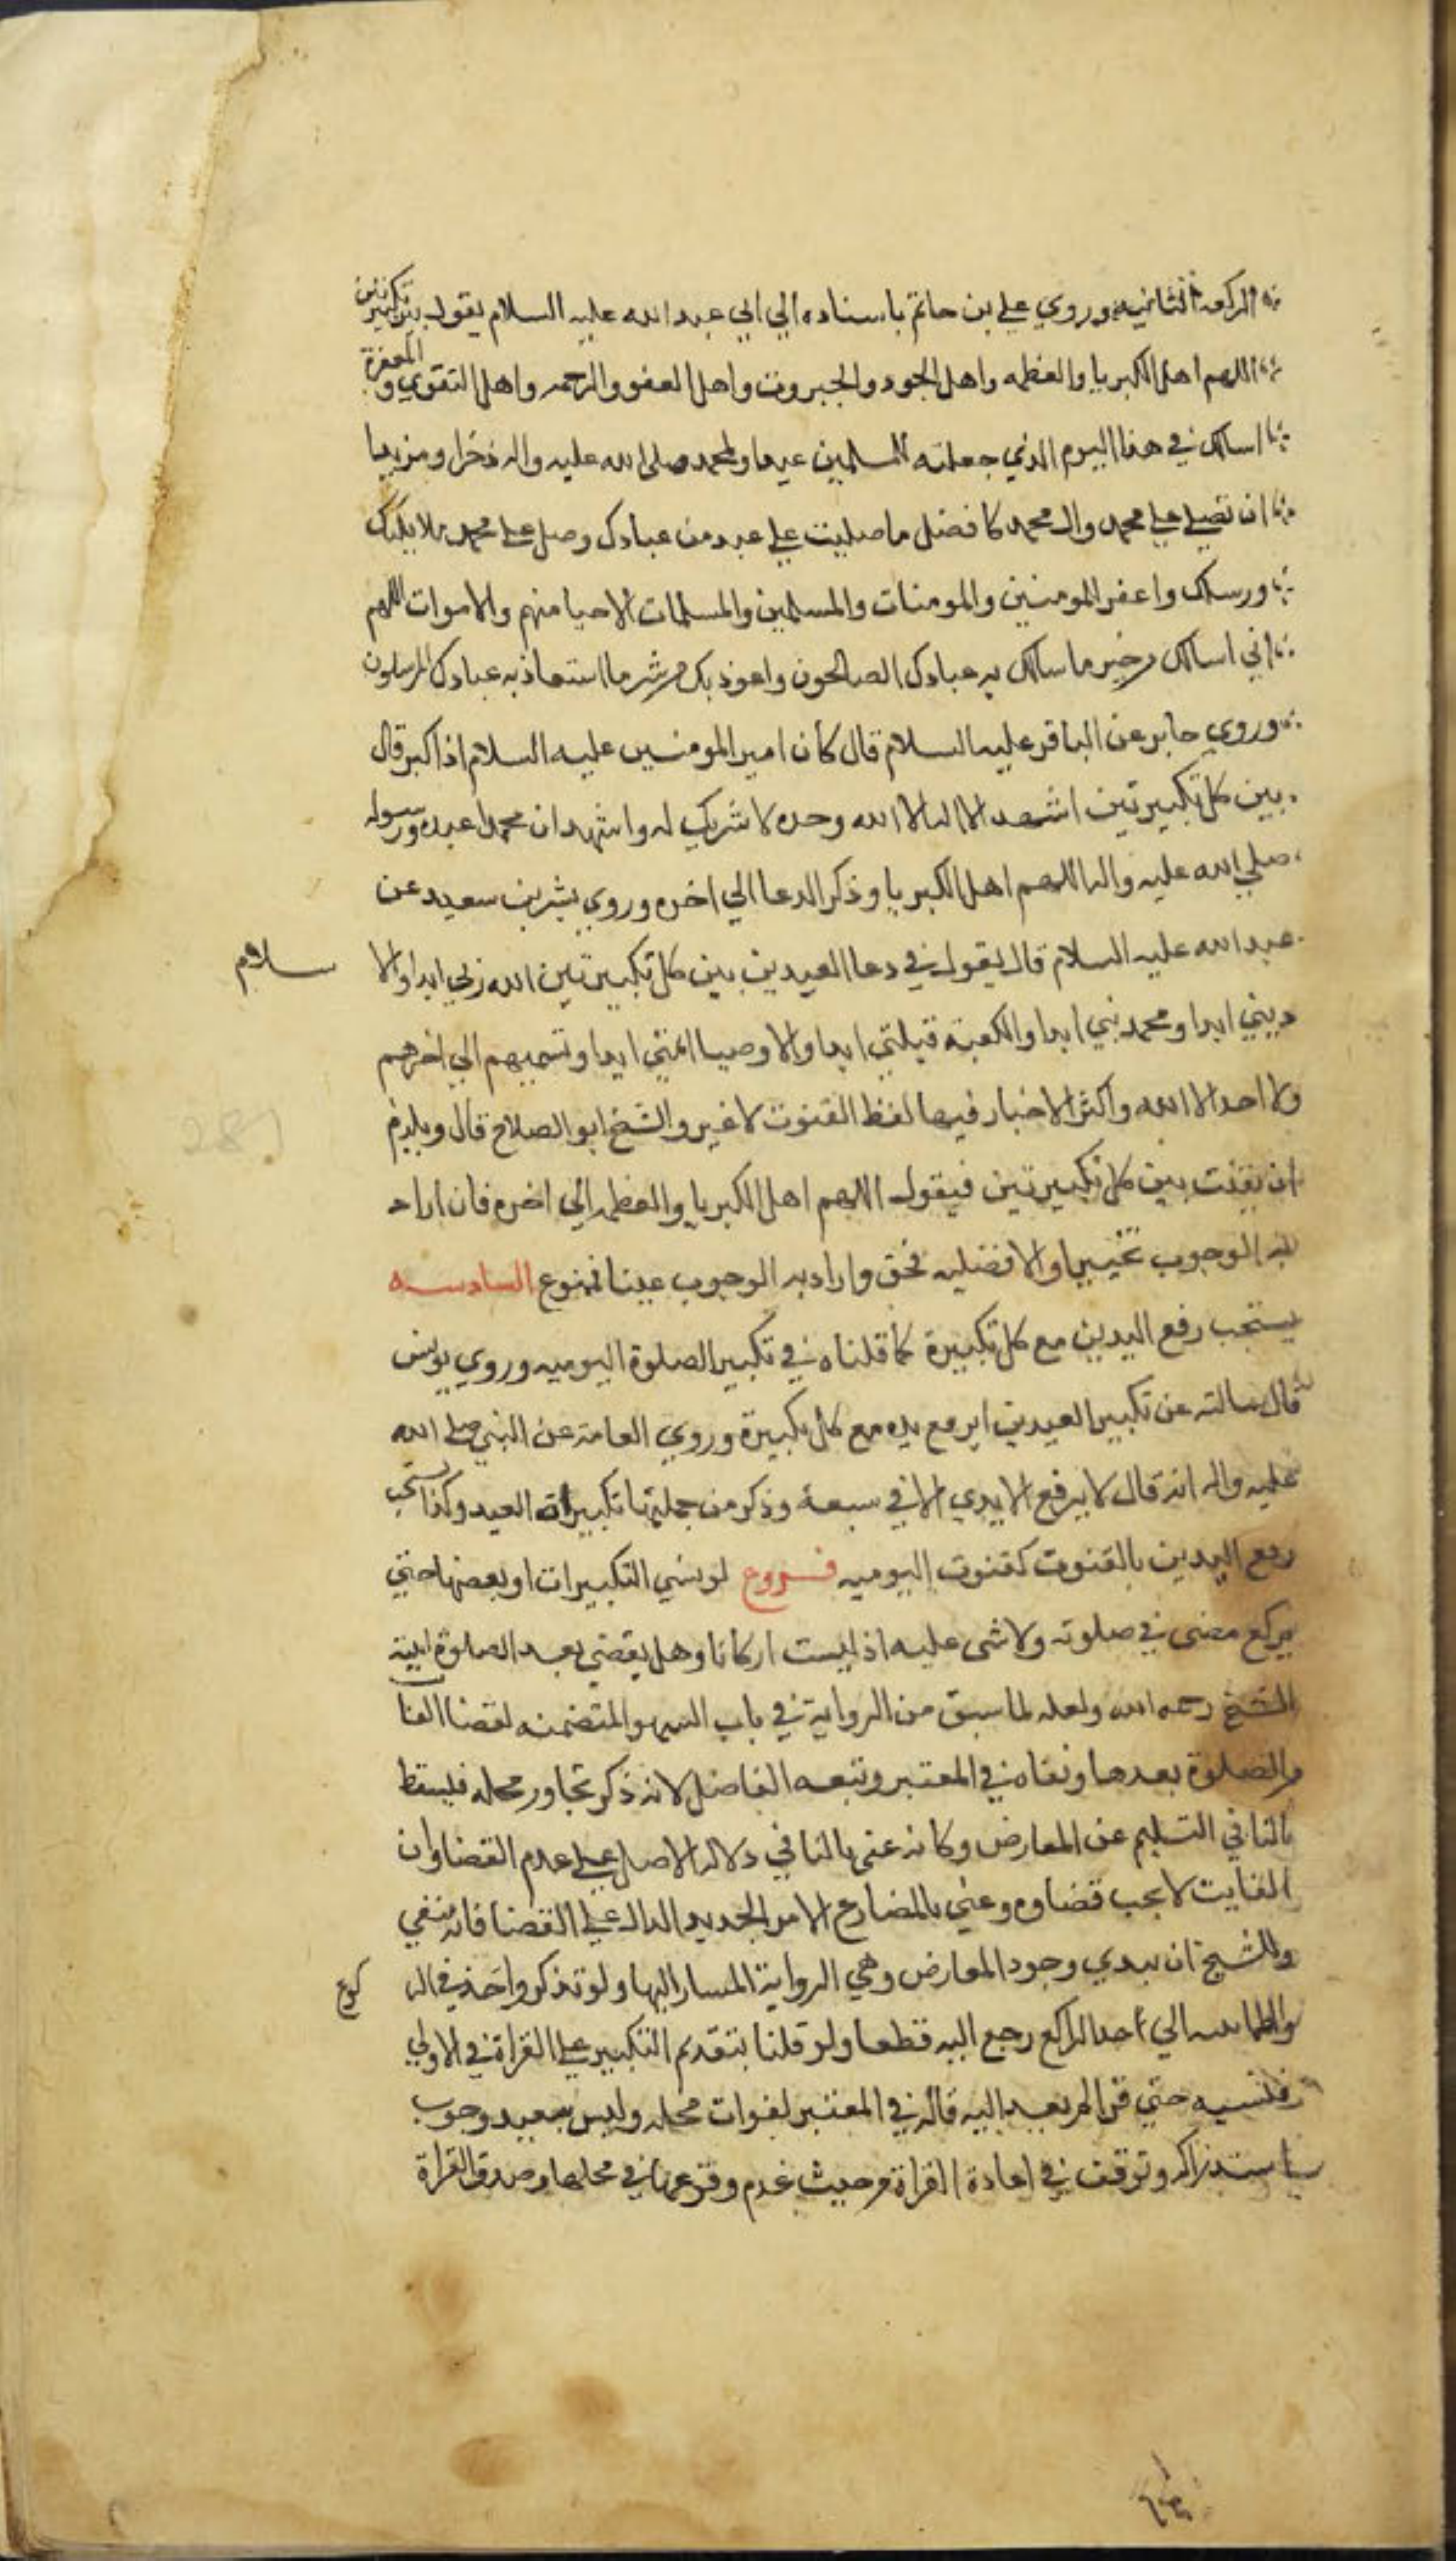 الركعه الثانيه وروي علي بن حاتم باسناده الي ابي عبد الله عليه السلام يقول بين تكبيرتين
اللهم اهل الكبريا والعظمه واهل الجود والجبروت واهل العفو والرحمه واهل التقوي والمغفرة
اسالك في هذا اليوم الذي جعلته للمسلمين عيدا ولمحمد صلي الله عليه واله ذخرا ومزيدا
ان تصلي علي محمد وال محمد كافضل ما صليت علي عبد من عبادك وصل علي ملايكتك
ورسلك واغفر للمومنين والمومنات والمسلمين والمسلمات الاحيا منهم والاموات اللهم
اني اسالك من خير ما سالك به عبادك الصالحون واعوذ بك من شر ما استعاذ به عبادك المرسلون
وروي جابر عن الباقر عليه السلام قال كان امير المومنين عليه السلام اذا كبر قال
بين كل تكبيرتين اشهد الا اله الا الله وحده لا شريك له واشهد ان محمدا عبده ورسوله
صلي الله عليه واله اللهم اهل الكبريا وذكر الدعا الي اخره وروي بشر بن سعيد عن
عبد الله عليه السلام قال يقول في دعا العيدين بين كل تكبيرتين الله ربي ابدا والا سلام
ديني ابدا ومحمد نبي ابدا والكعبة قبلتي ابدا والاوصيا ائمتي ابدا وتسميهم الي اخرهم
ولا احد الا الله واكثر الاخبار فيها لفظ القنوت لا غير والشيخ ابو الصلاح قال ويلزم
ان يقنت بين كل تكبيرتين فيقول اللهم اهل الكبريا والعظمه الي اخره فان اراد
به الوجوب تخييرا والافضليه فحق واراد به الوجوب عينا فممنوع السادسه
يستحب رفع اليدين مع كل تكبيرة كما قلناه في تكبير الصلوة اليوميه وروي يونس
قال سالته عن تكبير العيدين ايرفع يده مع كل تكبيرة وروي العامة عن النبي صلي الله
عليه واله انه قال لا يرفع الايدي الا في سبعة وذكر من جملتها تكبيرات العيد وكذا يستحب
رفع اليدين بالقنوت كقنوت اليوميه فروع لو نسي التكبيرات او بعضها حتي
يركع مضي في صلوته ولا شي عليه اذ ليست اركانا وهل يقضي بعد الصلوة اثبته
الشيخ رحمه الله ولعله لما سبق من الرواية في باب السهو المتضمنه لقضا الفا
من الصلوة بعدها ونفاه في المعتبر وتبعه الفاضل لانه ذكر تجاوز محله فيسقط
بالنافي السليم عن المعارض وكانه عني بالنافي دلالة الاصل علي عدم القضا وان
الفايت لا يجب قضاوه وعني بالمضارع الامر الجديد الدال علي القضا فانه منفي
وللشيخ ان يبدي وجود المعارض وهي الرواية المشار اليها ولو تذكر واخذ في الر كوع
الي حد الراكع رجع اليه قطعا ولو قلنا بتقديم التكبير علي القراة في الاولي
فنسيه حتي قرا لم يعد اليه قاله في المعتبر لفوات محله وليس ببعيد وجوب
استدراكه وتوقف في اعادة القراة من حيث عدم وقوعها في محلها وصدق القراة